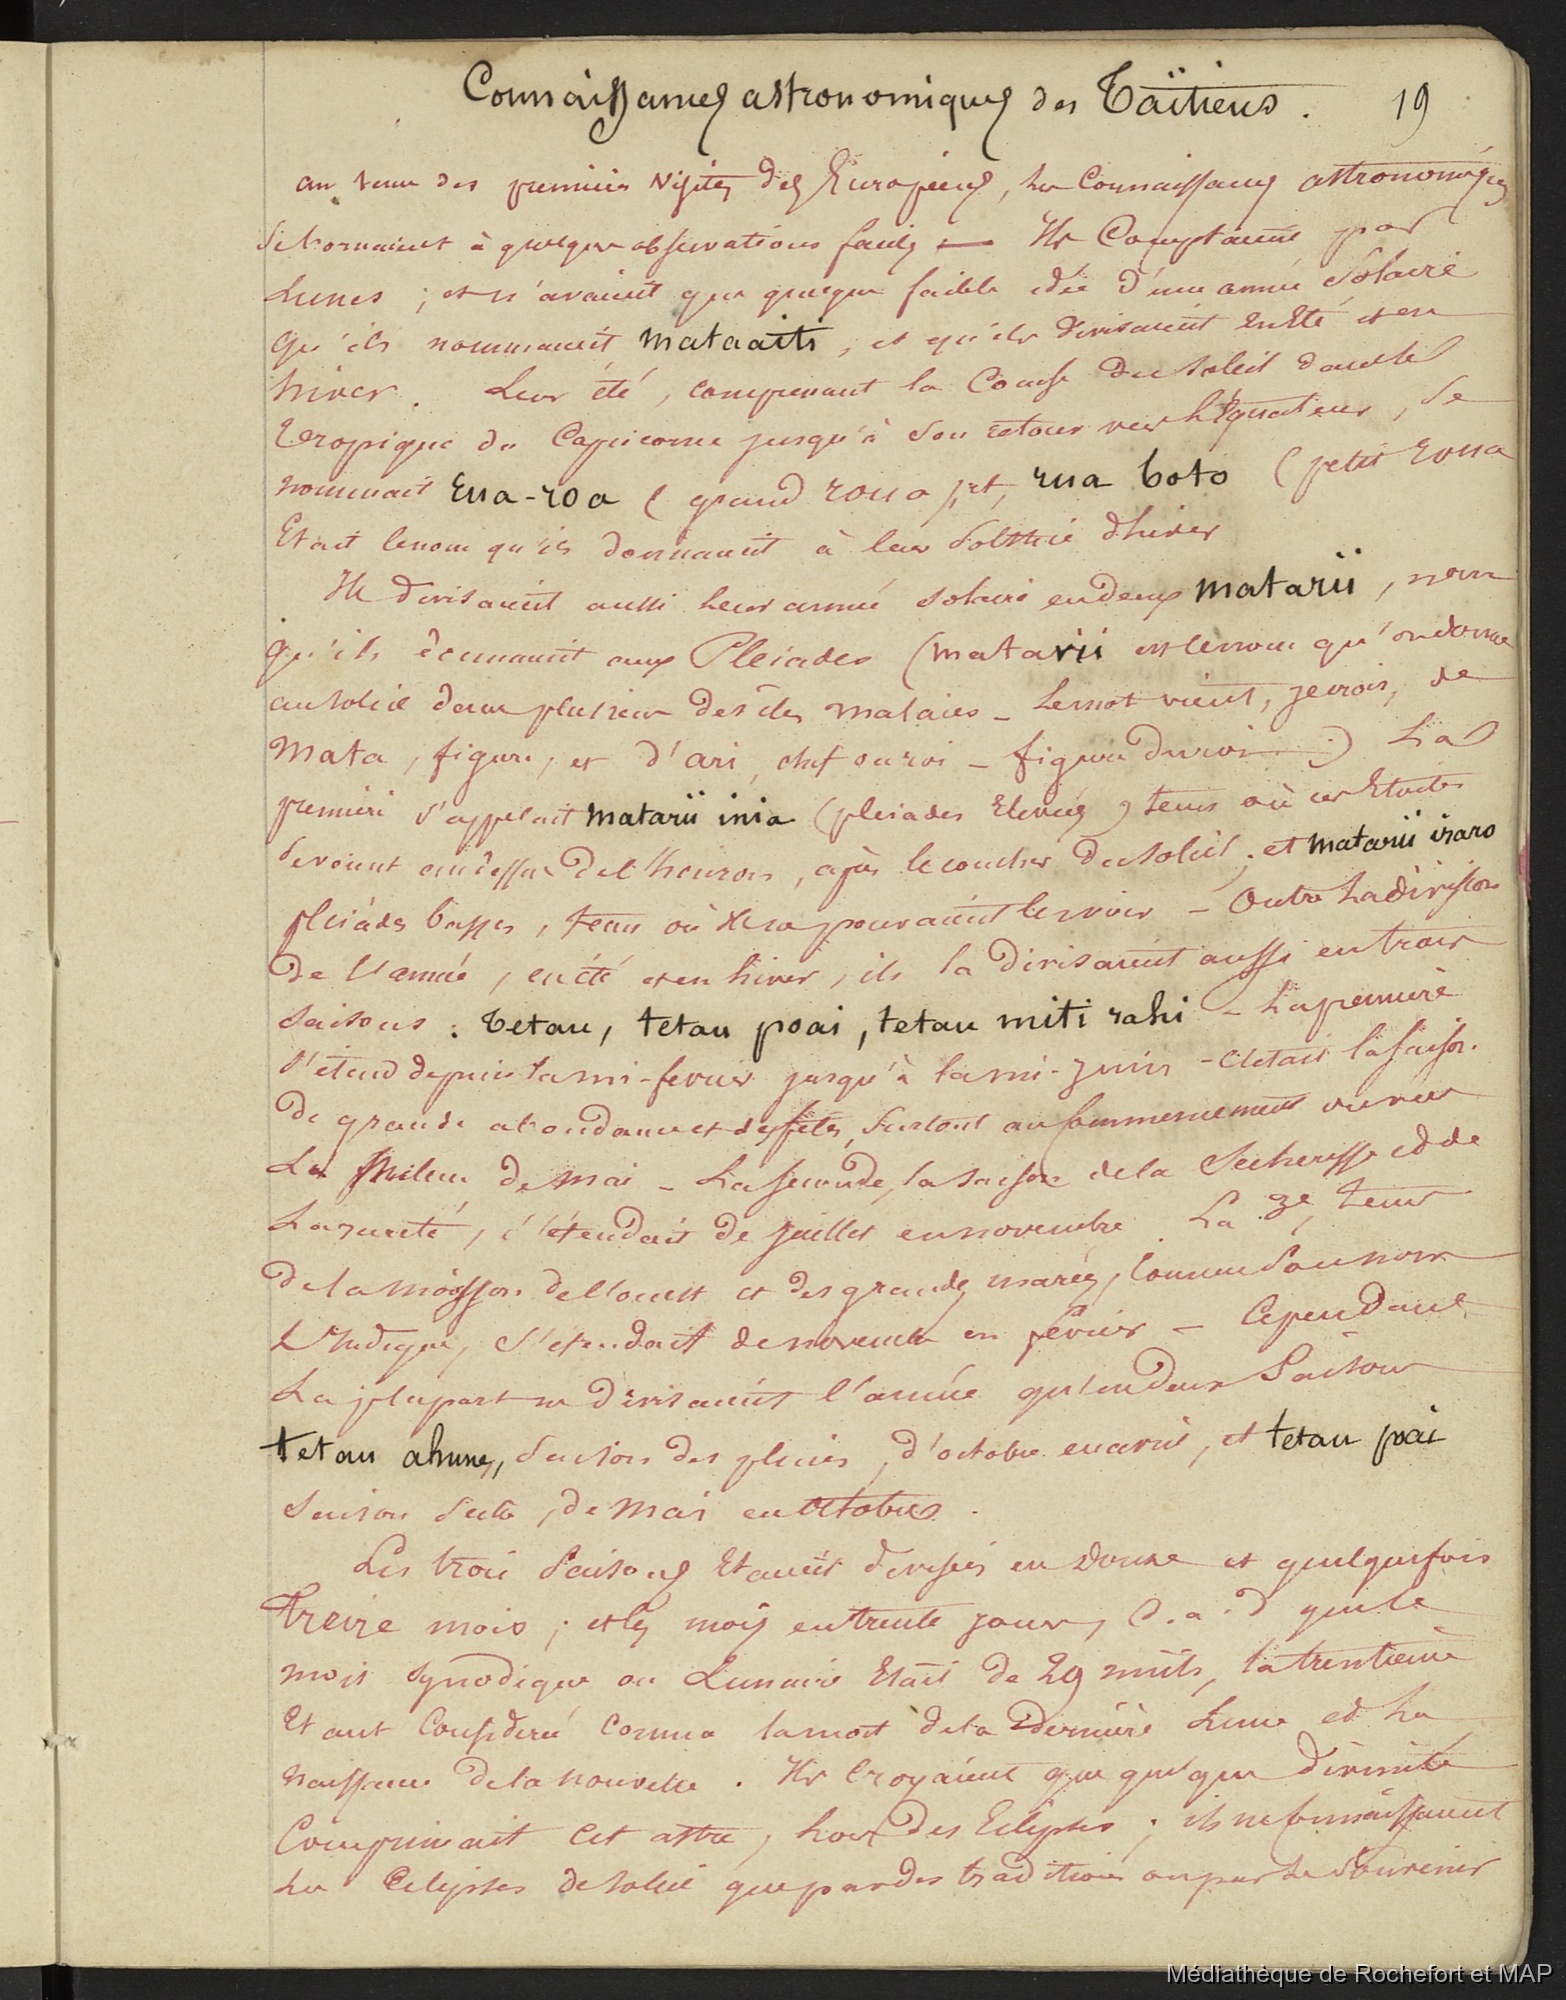 Connaissances astronomiques des Taïtiens. 19
au tems des premieres visites des Européens, les connaissances astronomiques
se bornaient à quelques observations faciles — Ils comptaient par
Lunes ; et n'avaient que quelque faible idée d'une année solaire
qu'ils nommaient mataaiti, et qu'ils divisaient en Eté et en
hiver. Leur été, comprenant la course du soleil dans le
tropique du Capricorne jusqu'à son retour vers l'Equateur, se
nommait Rua-roa (grand roua), et, rua boto (petit roua
Etait le nom qu'ils donnaient à leur solstice d'hiver
Ils divisaient aussi leur année solaire en deux matarii, nom
qu'ils donnaient aux Pleiades (matarii est le nom qu'on donne
au soleil dans plusieurs des îles malaies - Le mot vient, je crois, de
Mata, figure, et d'ari, chef ou roi - figure du roi) La
premiere s'appelait matarii inia (pleiades Elevées) tems où ces Etoiles
se voient au dessus de l'horizon, après le coucher du soleil ; et matarii iraro
pleiades basses, tems où ils ne pouvaient les voir - Outre la division
de l'année, en été et en hiver, ils la divisaient aussi en trois
saisons : Tetau, tetau poai, tetau miti rahi - La premiere
s'étend depuis la mi-fevrier jusqu'à la mi-juin - c'etait la saison
De grande abondance et des fêtes, surtout au commencement ou vers
Le milieu de mai - La seconde, la saison de la secheresse et de
La rareté, s'étendait de juillet en novembre. La 3e, tems
de la moisson de l'ouest et des grandes marées, comme son nom
L'indique, s'etendait de novembre en février - Cependant
La plupart ne divisaient l'année qu'en deux saisons
tetau ahune, saison des pluies, d'octobre en avril, et tetau poai
saison seche, de mai en octobre.
Les trois saisons Etaient divisées en douze et quelquefois
treize mois ; et les mois en trente jours, c.a.d que le
mois synodique ou Lunaire Etait de 29 nuits, la trentieme
Etant considerée comme la mort de la derniere Lune et la
naissance de la nouvelle. Ils croyaient que quelque divinité
comprimait cet astre, lors des Eclipses ; ils ne connaissaient
les Eclipses de soleil que par des traditions ou par le souvenir
Médiathèque de Rochefort et MAP